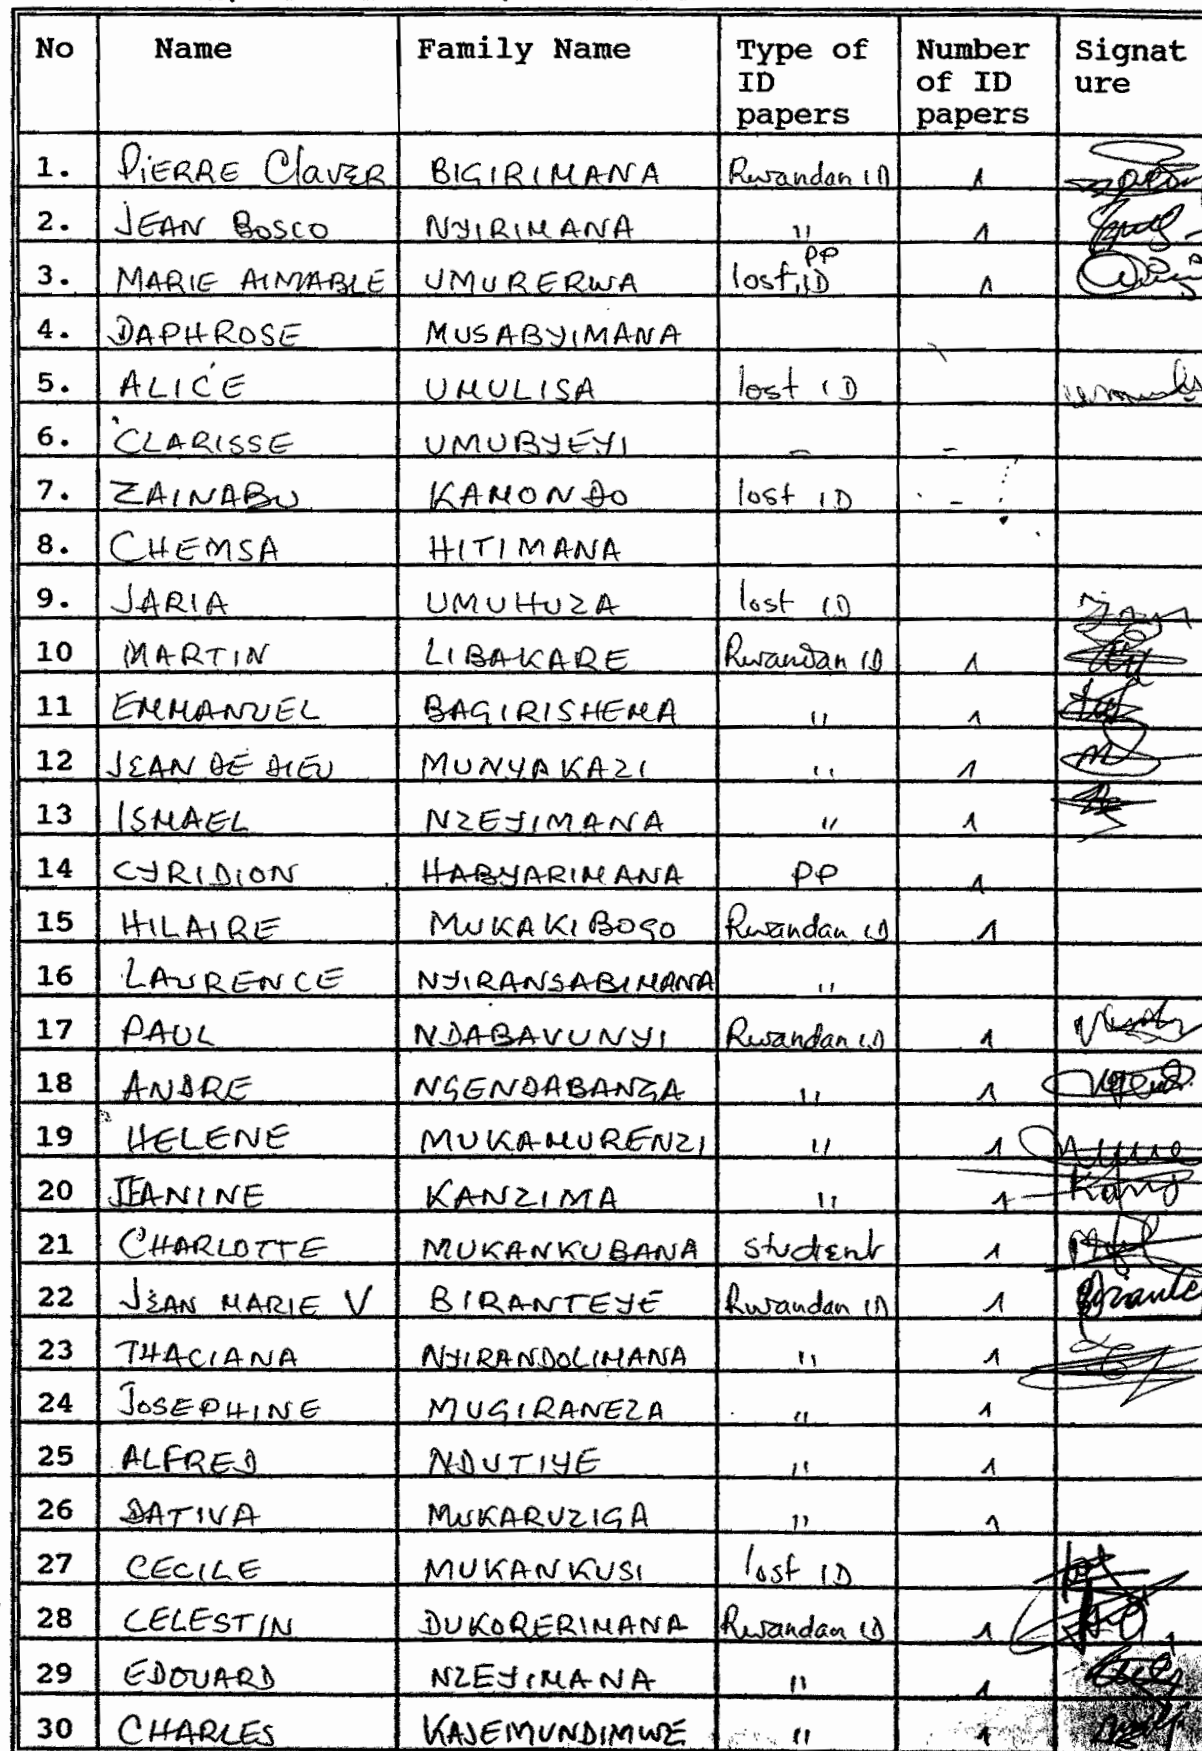 No Name Family Name Type of ID papers Number of ID papers Signat ure
1. PIERRE Claver BIGIRIMANA Rwandan ID 1
2. JEAN Bosco NYIRIMANA " 1
3. MARIE AIMABLE UMURERWA lost, ID PP 1
4. DAPHROSE MUSABYIMANA
5. ALICE UMULISA lost ID
6. CLARISSE UMUBYEYI - -
7. ZAINABU KAMONDO lost ID -
8. CHEMSA HITIMANA
9. JARIA UMUHUZA lost ID
10 MARTIN LIBAKARE Rwandan ID 1
11 EMMANUEL BAGIRISHEMA " 1
12 JEAN DE DIEU MUNYAKAZI " 1
13 ISMAEL NZEYIMANA " 1
14 CYRIDION HABYARIMANA PP 1
15 HILAIRE MUKAKIBOGO Rwandan ID 1
16 LAURENCE NYIRANSABIMANA "
17 PAUL NDABAVUNYI Rwandan ID 1
18 ANDRE NGENDABANGA " 1
19 HELENE MUKAMURENZI " 1
20 JEANINE KANZIMA " 1
21 CHARLOTTE MUKANKUBANA student 1
22 JEAN MARIE V BIRANTEYE Rwandan ID 1
23 THACIANA NYIRANDOLIMANA " 1
24 JOSEPHINE MUGIRANEZA " 1
25 ALFRED NDUTIYE " 1
26 DATIVA MUKARUZIGA " 1
27 CECILE MUKANKUSI lost ID
28 CELESTIN DUKORERIMANA Rwandan ID 1
29 EDOUARD NZEYIMANA " 1
30 CHARLES KAJEMUNDIMWE " 1